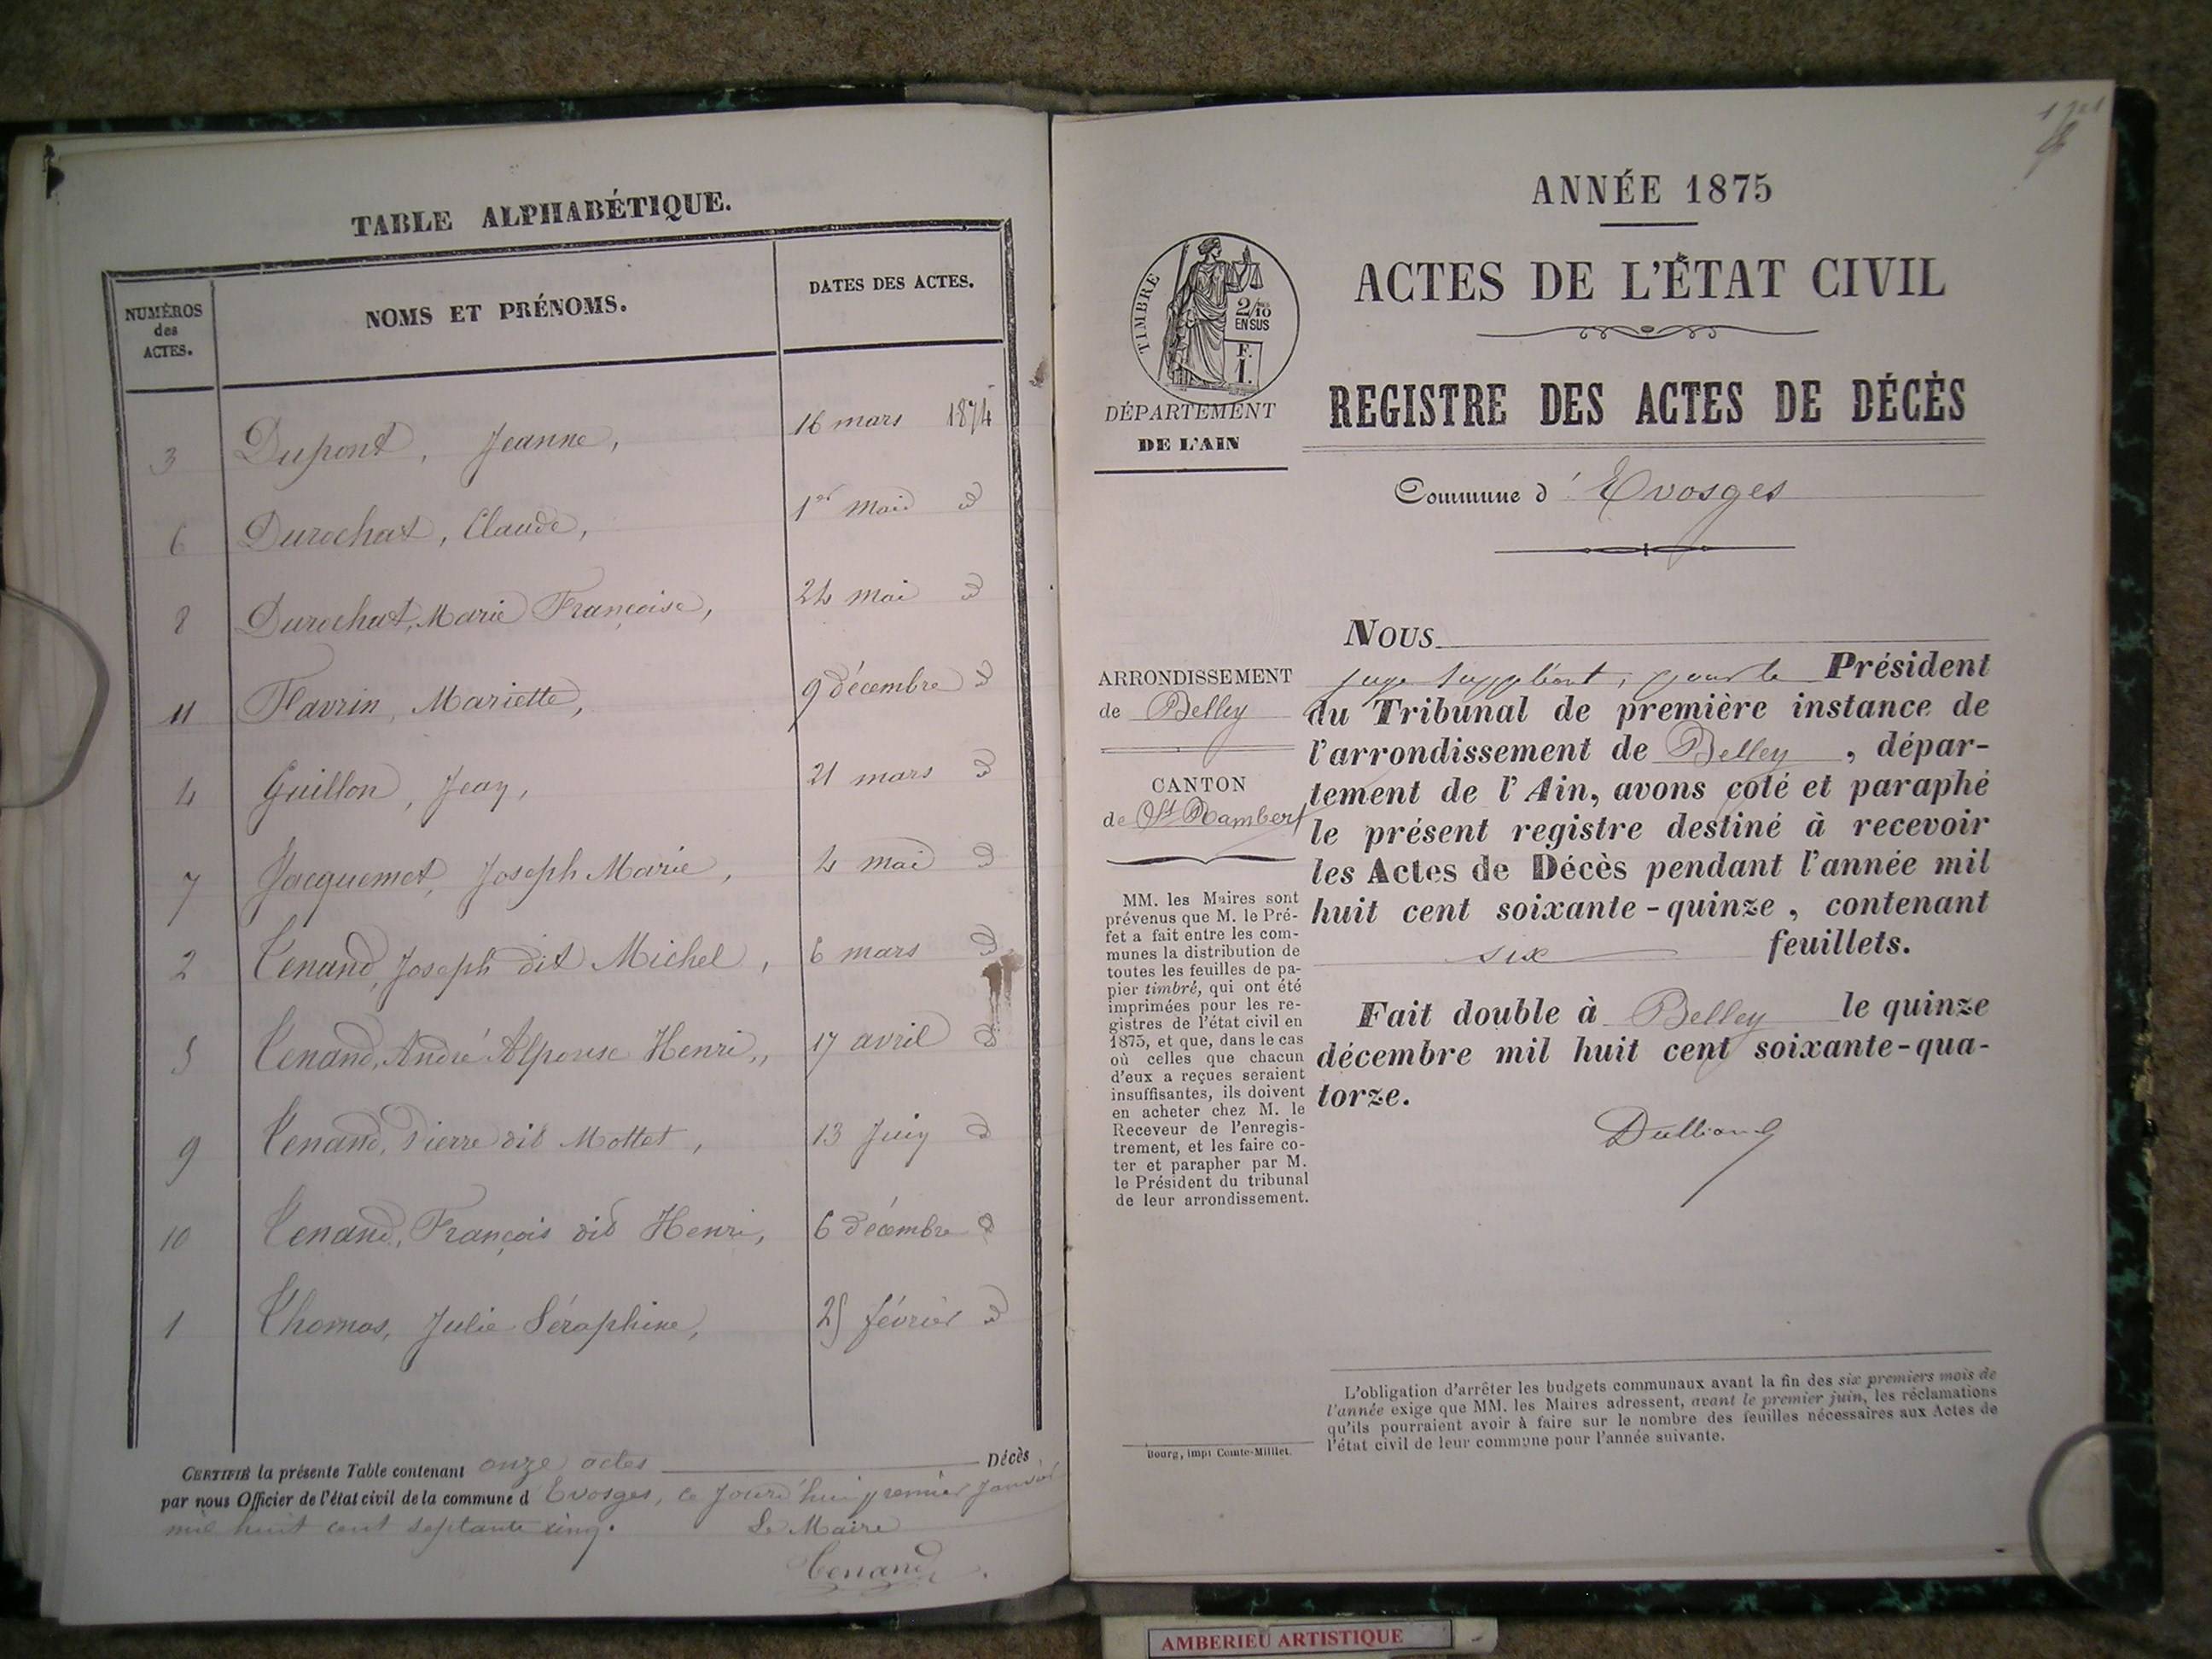 TABLE ALPHABÉTIQUE.
NUMÉROS
des
ACTES.
NOMS ET PRÉNOMS.
DATES DES ACTES.
3 Dupont, Jeanne, 16 mars 1874
6 Durochat, Claude, 1er mai d
8 Durochat, Marie Françoise, 24 mai d
11 Flavrin, Mariette, 9 décembre d
4 Guillon, Jean, 21 mars d
7 Jacquemet, Joseph Marie, 4 mai d
2 Tenand, Joseph dit Michel, 6 mars d
5 Tenand, André Alponse Henri, 17 avril d
9 Tenand, Pierre dit Mottet, 13 Juin d
10 Tenand, François dit Henri, 6 décembre d
1 Thomas, Julie Séraphine, 25 février d
CERTIFIÉ la présente Table contenant onze actes Décès
par nous Officier de l'état civil de la commune d Evosges, ce jourd'hui premier Janvier
mil huit cent septante cinq. Le Maire
Tenand
ANNÉE 1875
ACTES DE L'ÉTAT CIVIL
TIMBRE
2/10
EN SUS
F.
1.
DÉPARTEMENT
DE L'AIN
REGISTRE DES ACTES DE DÉCÈS
Commune d' Evosges
ARRONDISSEMENT
de Belley
CANTON
de St Rambert
MM. les Maires sont
prévenus que M. le Pré-
fet a fait entre les com-
munes la distribution de
toutes les feuilles de pa-
pier timbré, qui ont été
imprimées pour les re-
gistres de l'état civil en
1875, et que, dans le cas
où celles que chacun
d'eux a reçues seraient
insuffisantes, ils doivent
en acheter chez M. le
Receveur de l'enregis-
trement, et les faire co-
ter et parapher par M.
le Président du tribunal
de leur arrondissement.
Bourg, impr Comte-Milliet.
NOUS
juge suppléant, pour le Président
du Tribunal de première instance de
l'arrondissement de Belley, dépar-
tement de l'Ain, avons coté et paraphé
le présent registre destiné à recevoir
les Actes de Décès pendant l'année mil
huit cent soixante-quinze, contenant
six feuillets.
Fait double à Belley le quinze
décembre mil huit cent soixante-qua-
torze.
L'obligation d'arrêter les budgets communaux avant la fin des six premiers mois de
l'année exige que MM. les Maires adressent, avant le premier juin, les réclamations
qu'ils pourraient avoir à faire sur le nombre des feuilles nécessaires aux Actes de
l'état civil de leur commune pour l'année suivante.
AMBERIEU ARTISTIQUE